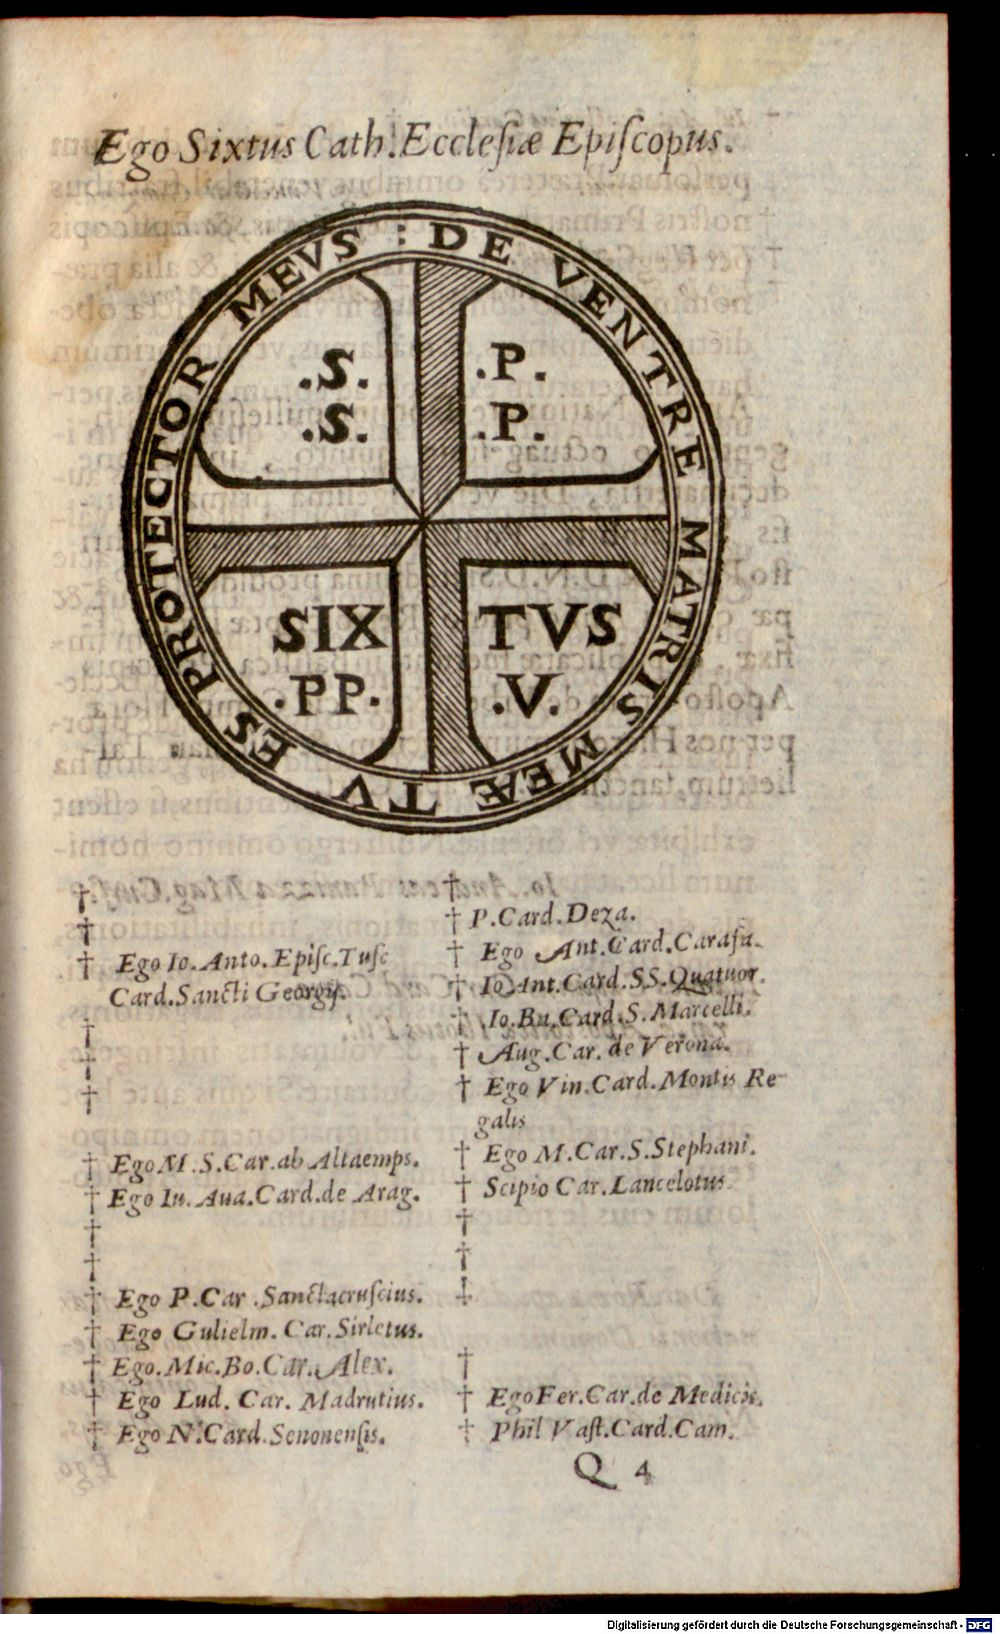 Ego Sixtus Cath. Ecclesiæ Episcopus.
: DE VENTRE MATRIS MEÆ TV ES PROTECTOR MEVS
.S. .P.
.S. .P.
SIX TVS
.PP. .V.
†
†
† Ego Io. Anto. Episc. Tusc
Card. Sancti Georgij.
†
†
†
† Ego M. S. Car. ab Altaemps.
† Ego In. Aua. Card. de Arag.
†
†
† Ego P. Car. Sanctacruscius.
† Ego Gulielm. Car. Sirletus.
† Ego. Mic. Bo. Car. Alex.
† Ego Lud. Car. Madrutius.
† Ego N. Card. Senonensis.
†
† P. Card. Deza.
† Ego Ant. Card. Carafa.
† Io Ant. Card. SS. Quatuor.
† Io. Bu. Card. S. Marcelli.
† Aug. Car. de Verona.
† Ego Vin. Card. Montis Re-
galis
† Ego M. Car. S. Stephani.
† Scipio Car. Lancelotus.
†
†
†
†
† Ego Fer. Car. de Medicis.
† Phil Vast. Card. Cam.
Q 4
Digitalisierung gefördert durch die Deutsche Forschungsgemeinschaft - DFG